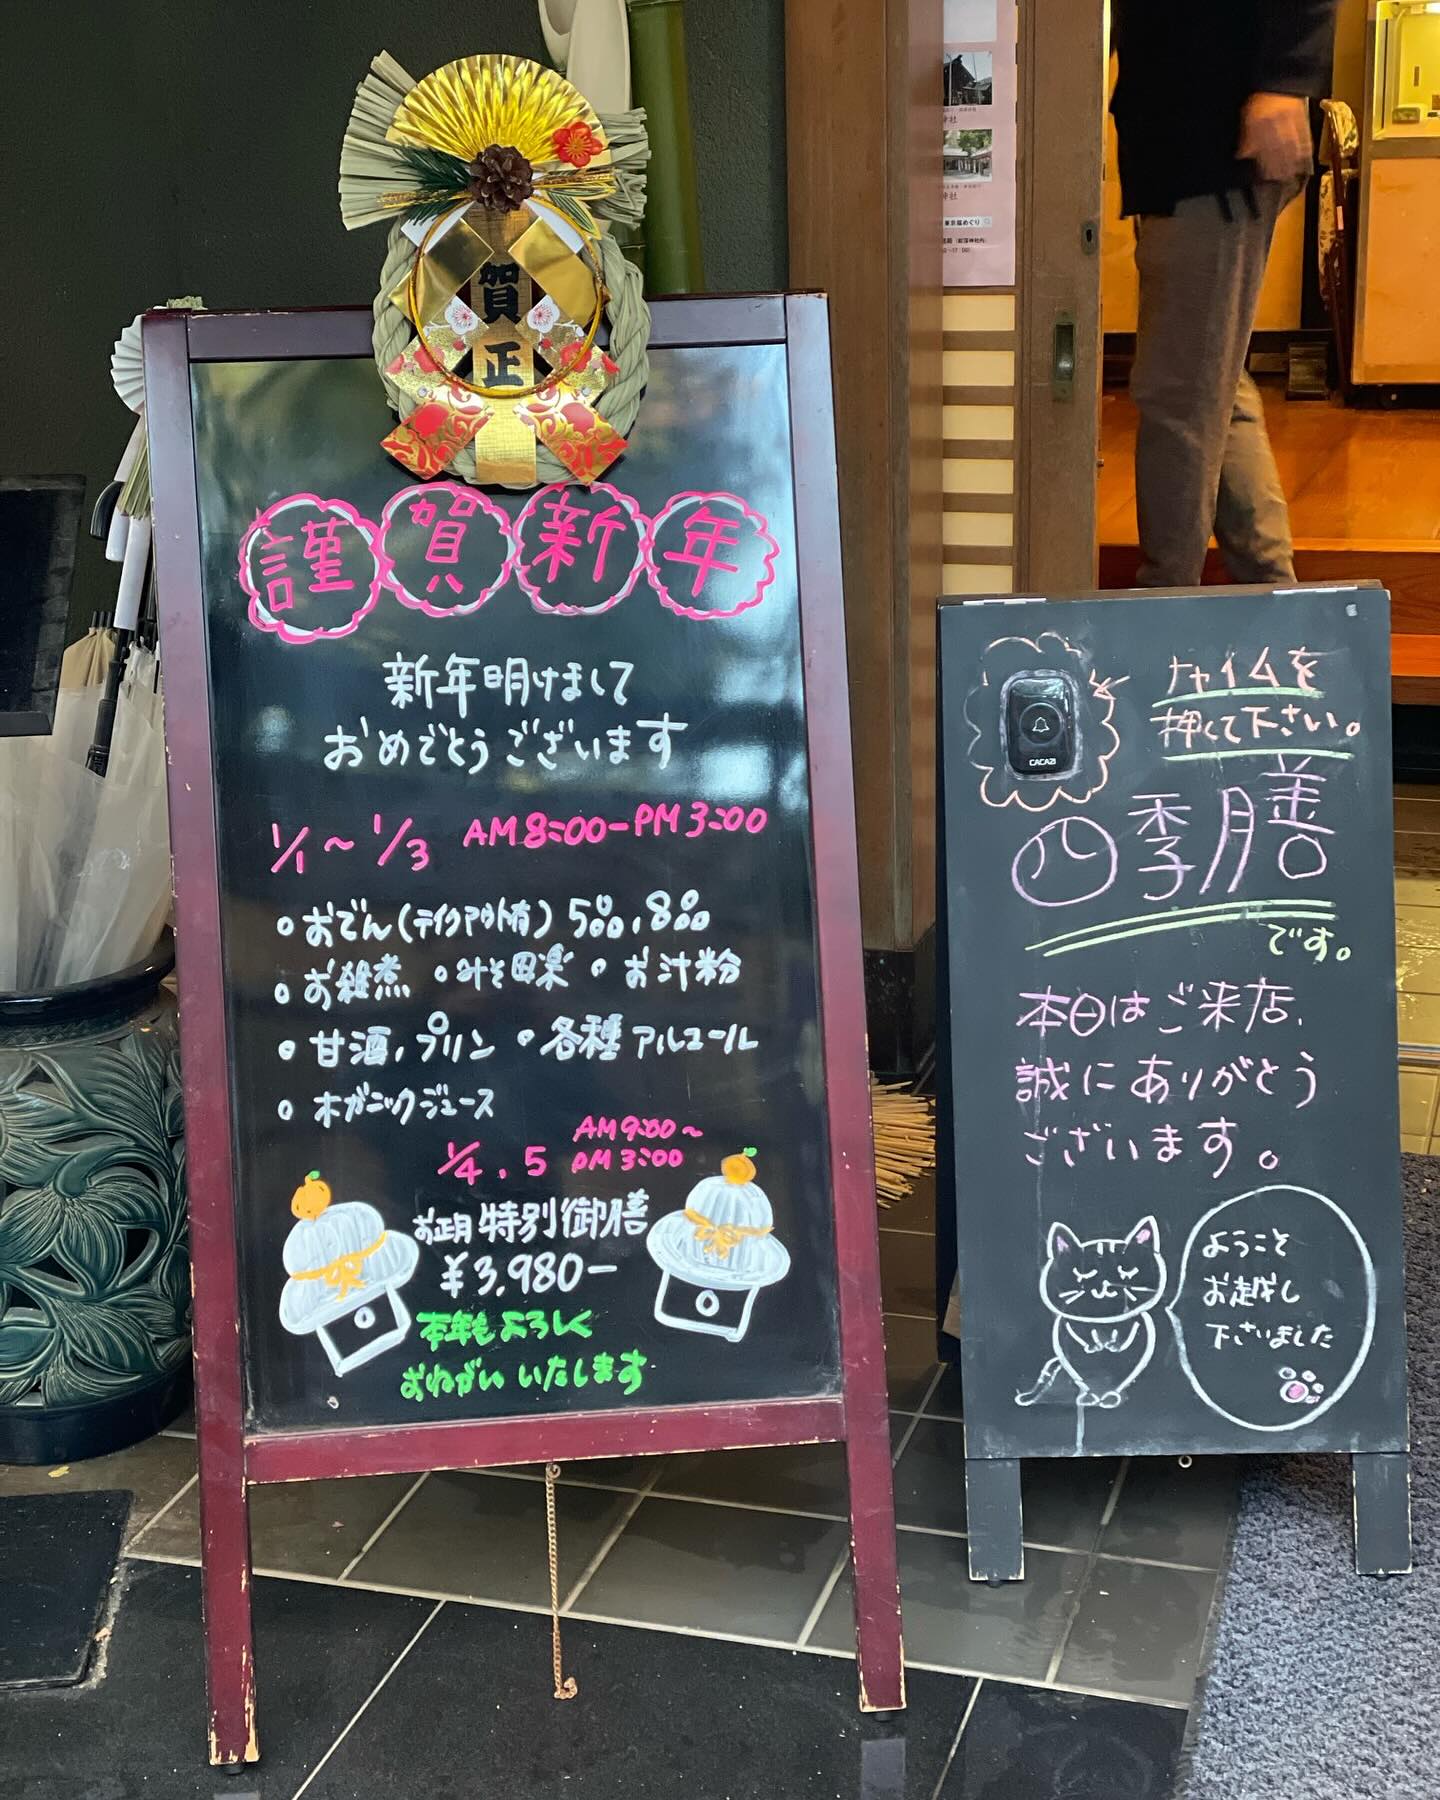 賀正
謹賀新年
新年明けまして
おめでとうございます
1/1～1/3 AM8:00-PM3:00
。おでん(テイクアウト有)5品,8品
。お雑煮 。みそ田楽 。お汁粉
。甘酒,プリン 。各種アルコール
。オーガニックジュース
1/4.5 AM9:00～
PM3:00
お正月特別御膳
¥3,980-
本年もよろしく
おねがいいたします
神社
神社
東京福めぐり
チャイムを
押して下さい。
CACAZI
四季膳
です。
本日はご来店、
誠にありがとう
ございます。
ようこそ
お越し
下さいました